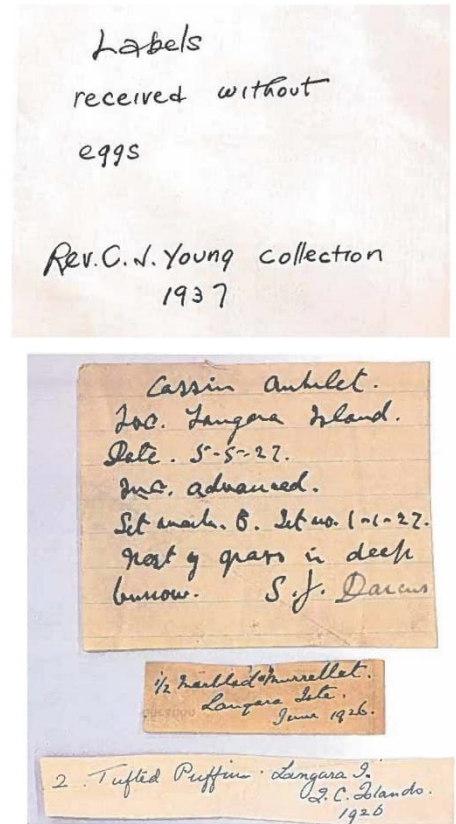 Labels
received without
eggs
Rev. C. J. Young collection
1937
Cassin Auklet.
Loc. Langara Island.
Date. 5-5-27.
Inc. advanced.
Set mark. B. Set no. 1-1-27.
Nest of grass in deep
burrow. S. J. Darcus
1/2 Marbled Murrellet.
Langara Isle.
June 1926.
2. Tufted Puffin. Langara I.
Q. C. Islands.
1926